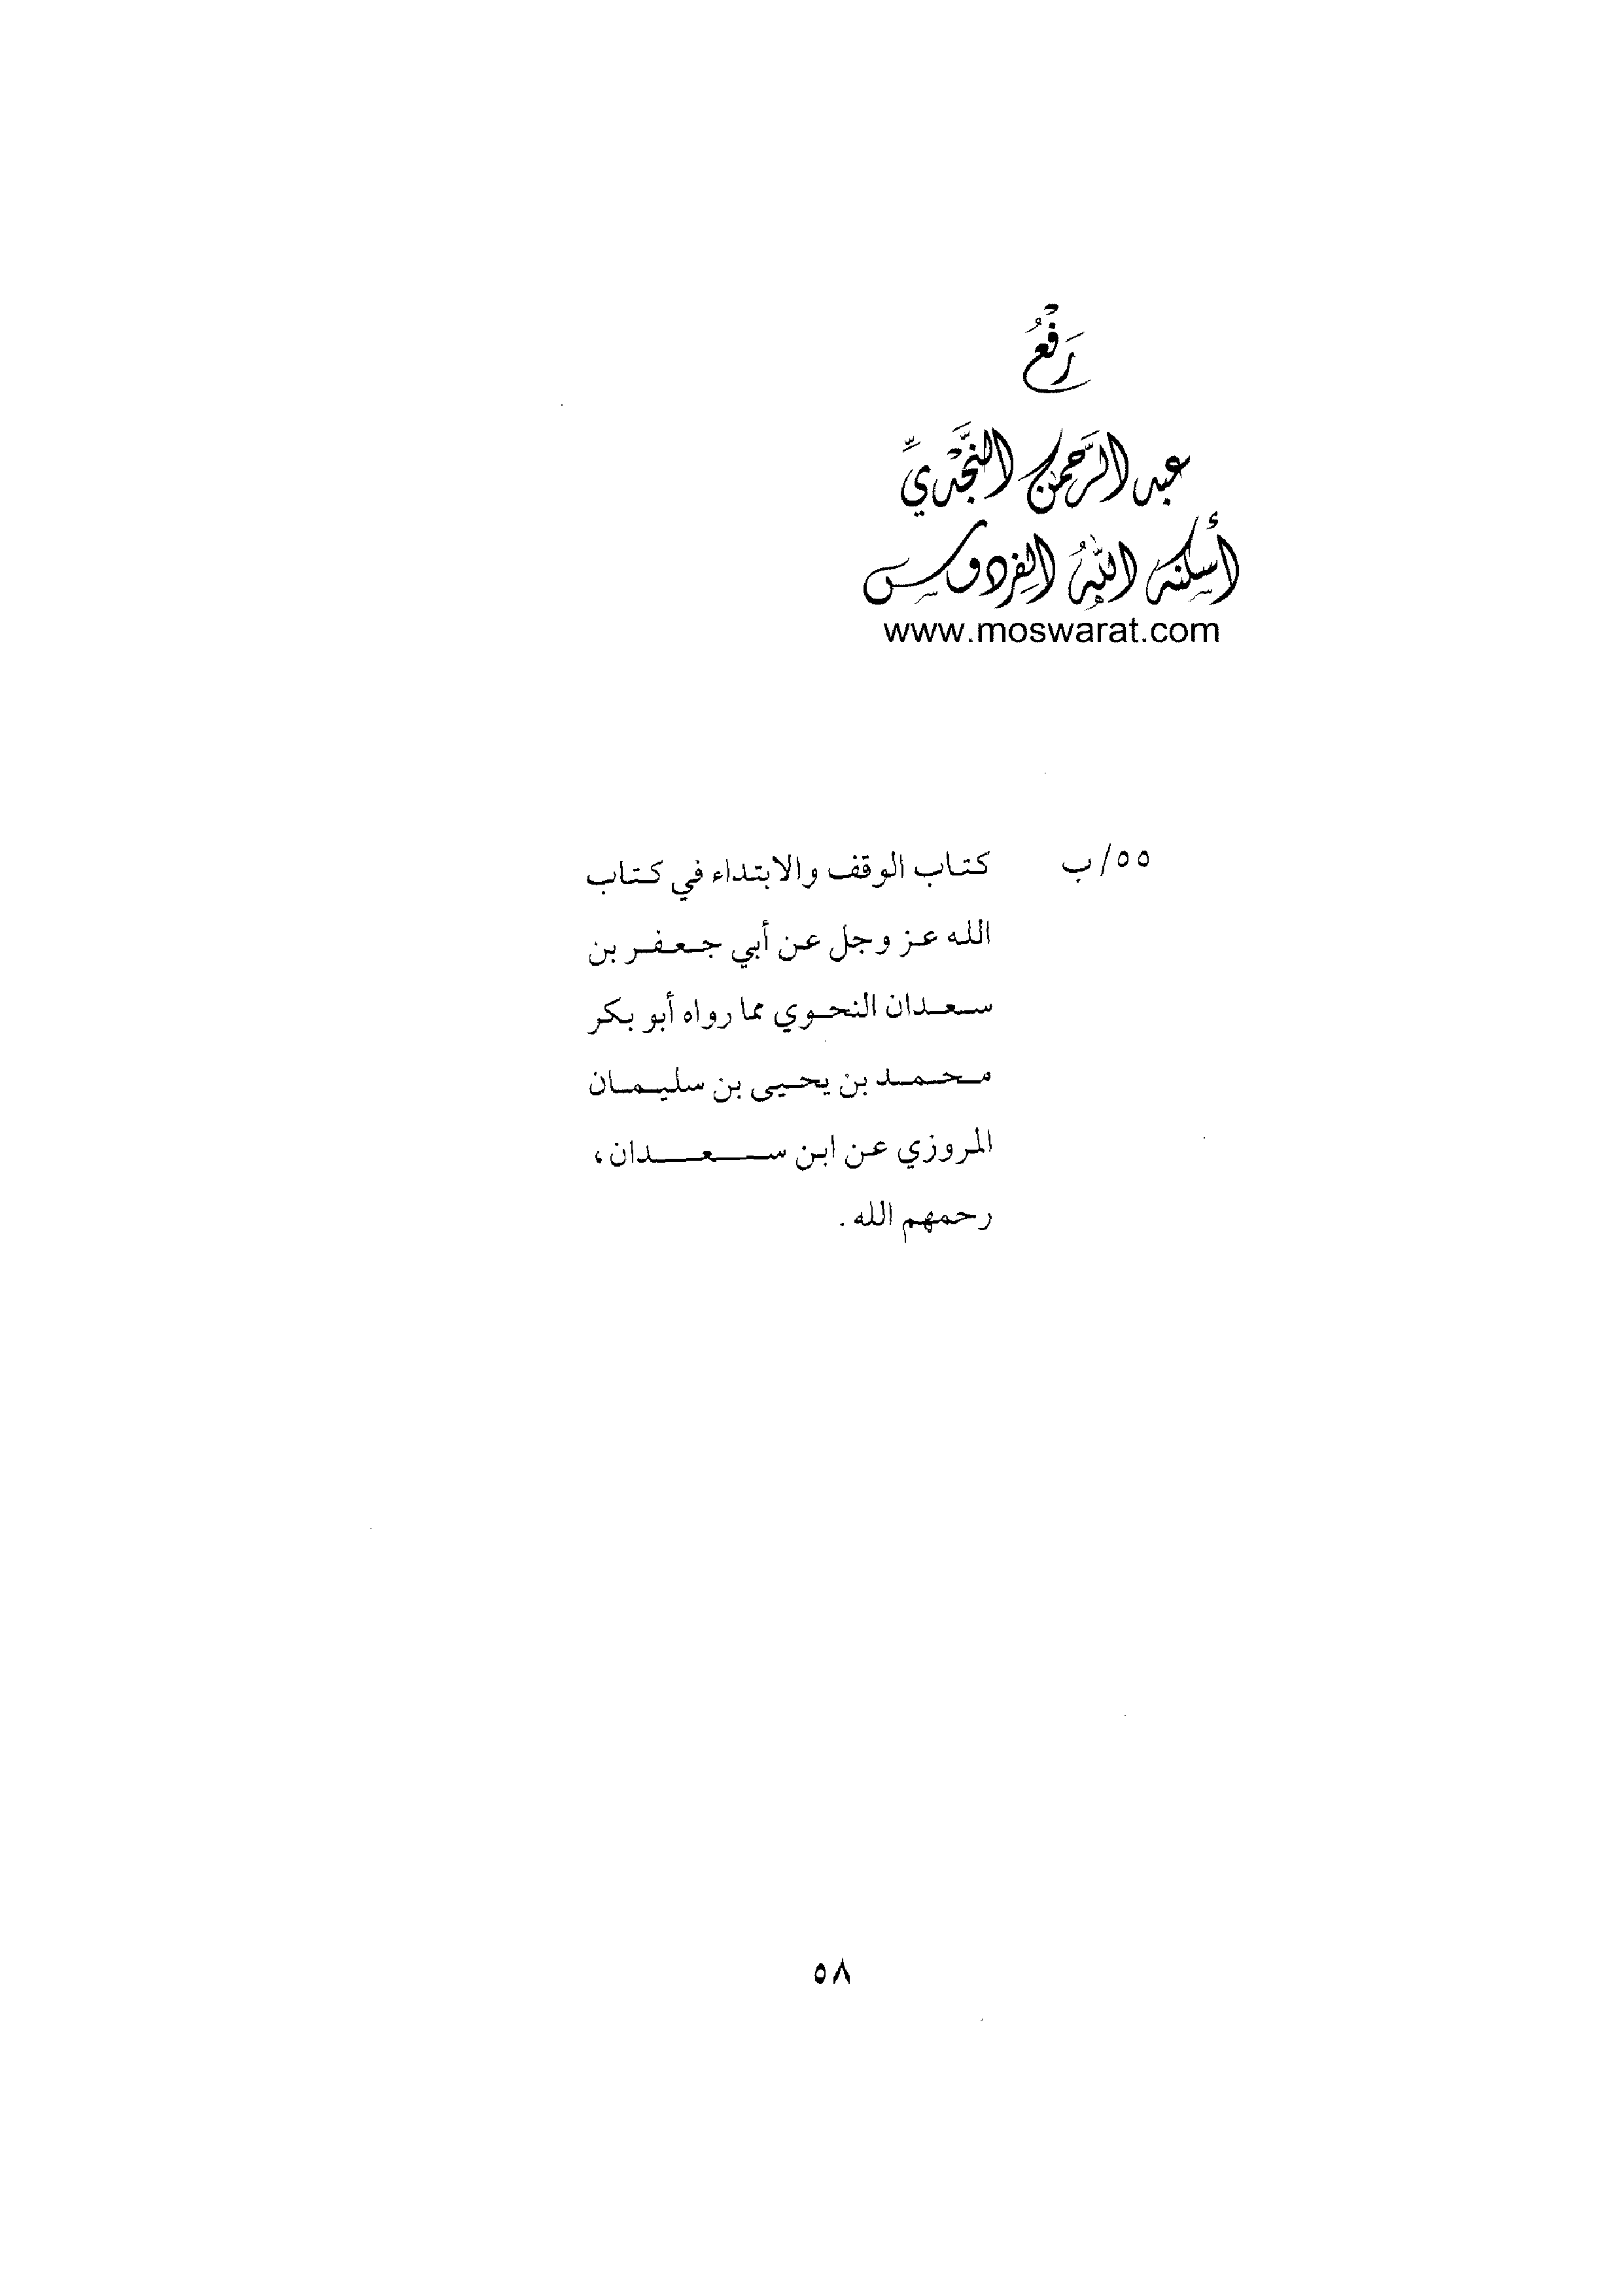 رَفْعُ
عبد الرَّحمن النَّجْديِّ
أسكنه اللهُ الفردوس
www.moswarat.com
٥٥/ب كتاب الوقف والابتداء في كتاب
الله عز وجل عن أبي جعفر بن
سعدان النحوي مما رواه أبو بكر
محمد بن يحيى بن سليمان
المروزي عن ابن سعدان،
رحمهم الله .
٥٨